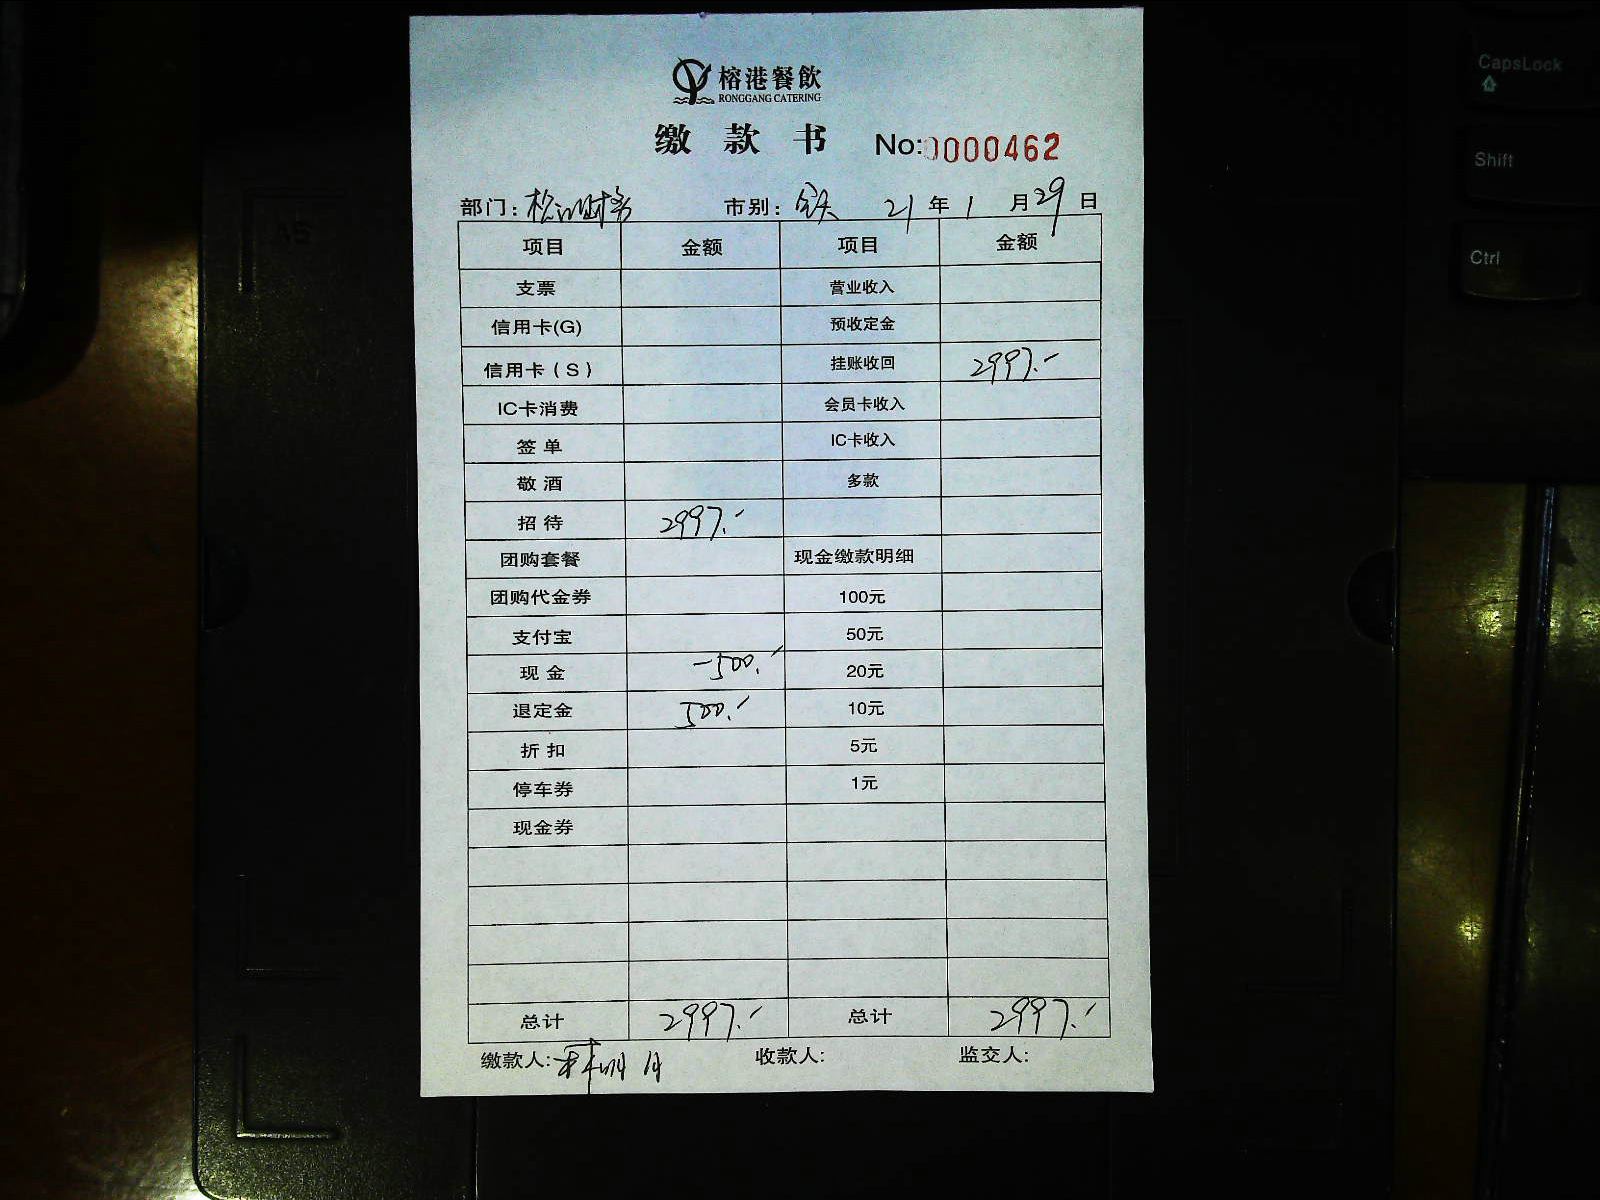 榕港餐飲
RONGGANG CATERING
缴款书 No:0000462
部门: 财务 市别: 全天 21年1月29日
项目 金额 项目 金额
支票 营业收入
信用卡(G) 预收定金
信用卡(S) 挂账收回 2997.-
IC卡消费 会员卡收入
签单 IC卡收入
敬酒 多款
招待 2997.-
团购套餐 现金缴款明细
团购代金券 100元
支付宝 50元
现金 -500.- 20元
退定金 500.- 10元
折扣 5元
停车券 1元
现金券
总计 2997.- 总计 2997.-
缴款人: 收款人: 监交人:
CapsLock
Shift
Ctrl
A5